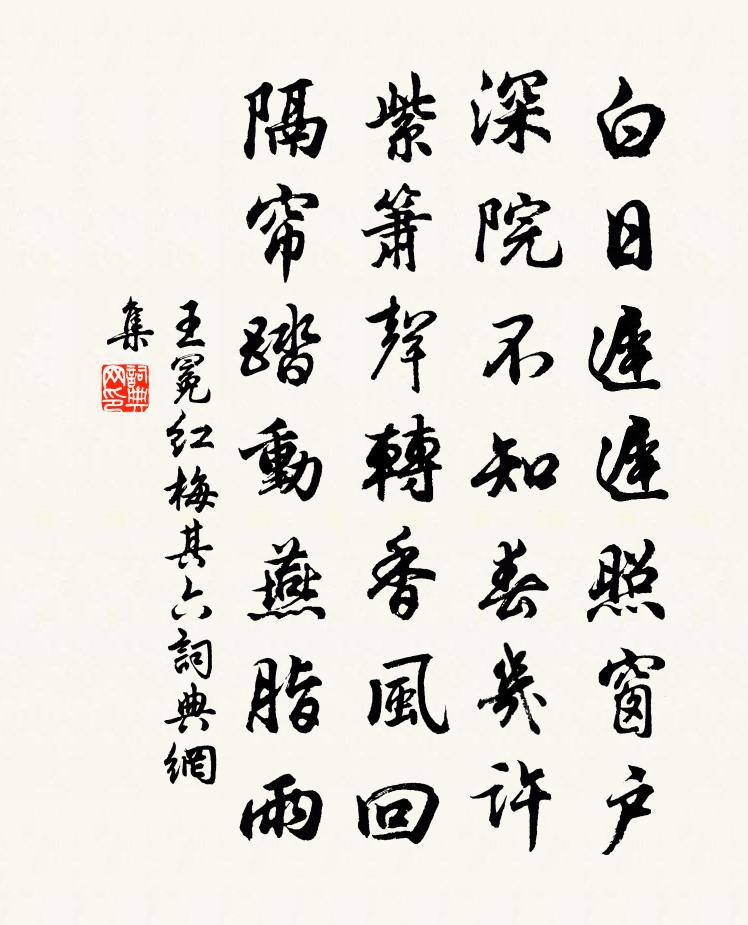 白日遲遲照窗户
深院不知春幾許
紫簫聲轉香風回
隔帘踏動燕脂雨
王冕紅梅其六詞典網
集
詞典
网印